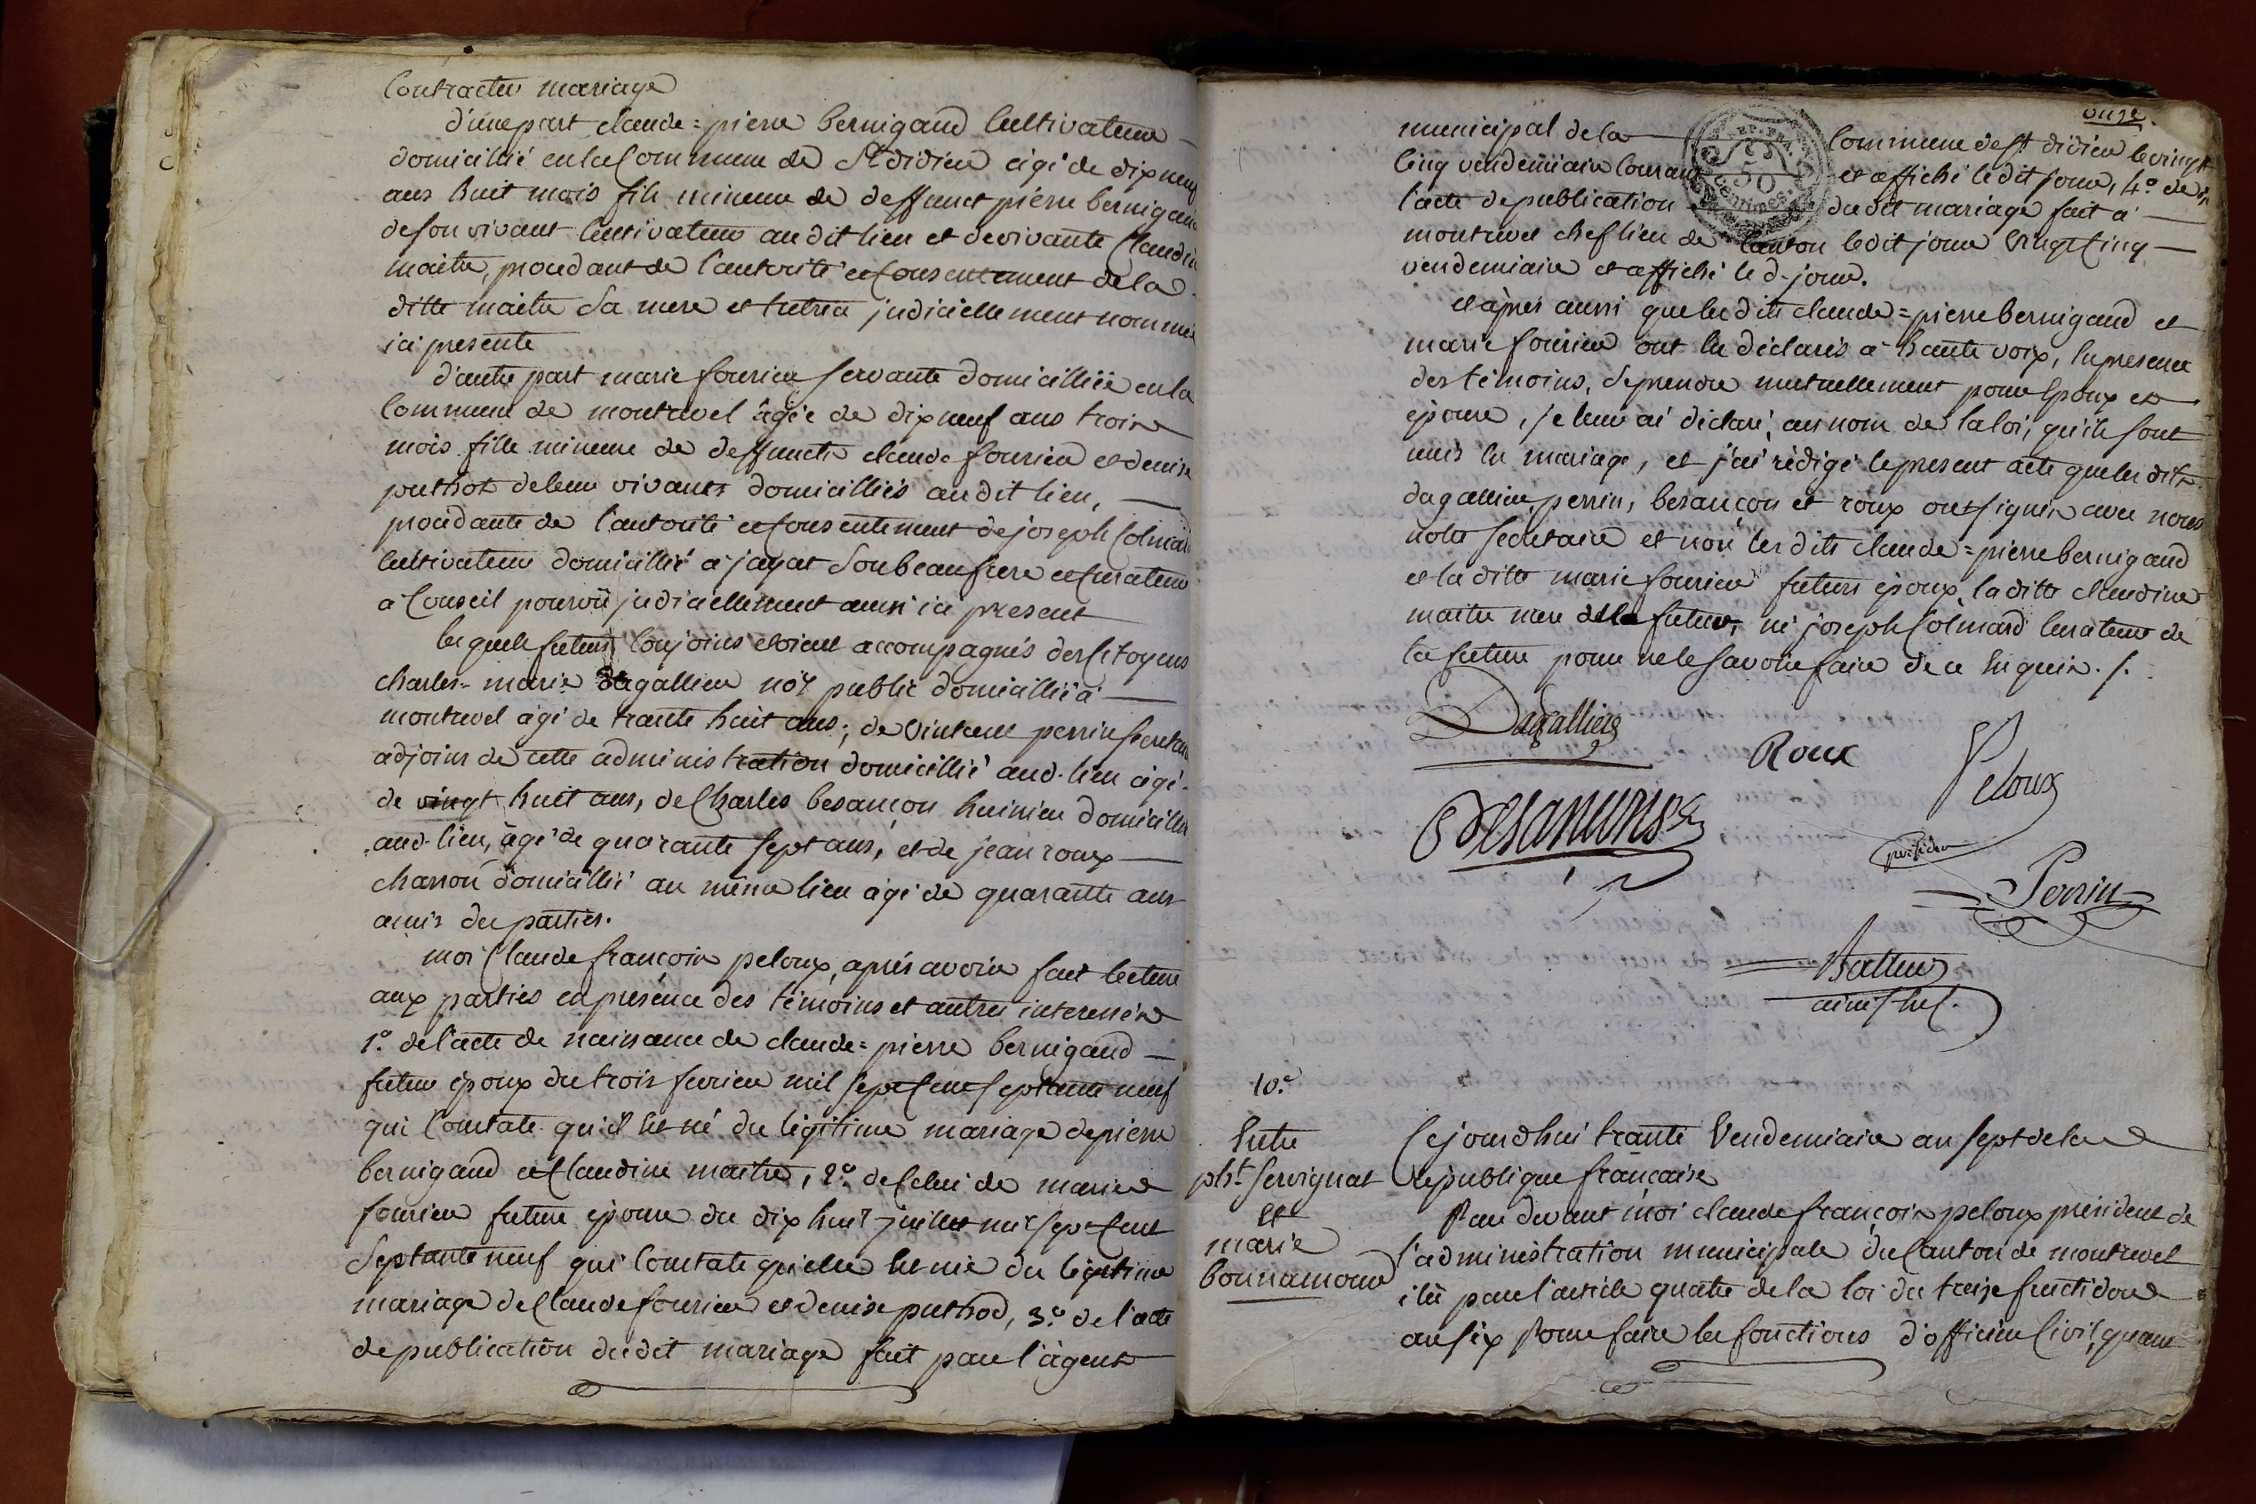 Contracter mariage
d'une part claude=pierre bernigaud Cultivateur
domicillié en la Commune de St didier agé de dix neuf
ans huit mois fils mineur de deffunct pierre bernigaud
de son vivant Cultivateur audit lieu et de vivante Claudine
maitre, procedant de l'autorité et Consentement de la
ditte maitre Sa mere et tutrice judiciellement nommée
ici presente
d'autre part marie fourier servante domicilliée en la
Commune de montrevel agée de dix neuf ans trois
mois fille mineure de deffuncts claude fourier et denise
puthod de leur vivants domicilliés audit lieu,
procedante de l'autorité et Consentement de joseph Colmard
Cultivateur domicillié a jayat Son beaufrere et Curateur
a Conseil pourvu judiciellement aussi ici present
lesquels futurs Conjoints etoient accompagnés des Citoyens
charles=marie dagallier noy public domicillié a
montrevel agé de trante huit ans, de Vincent perrin secretaire
adjoins de cette administration domicillié aud. lieu agé
de vingt huit ans, de Charles besançon huissier domicillié
aud. lieu, agé de quarante sept ans, et de jean roux
charron domicillié au même lieu agé de quarante ans
amis des parties.
moi Claude françois peloux, après avoir fait lecture
aux parties en presence des témoins et autres interessés
1.o de l'acte de naissance de claude=pierre bernigaud
futur époux du trois fevrier mil sept Cent septante neuf
qui Constate qu'il est né du légitime mariage de pierre
bernigaud et Claudine maitre, 2.o de Celui de marie
fourier future épouse du dix huit juillet mil sept Cent
Septante neuf qui Constate qu'elle est née du légitime
mariage de Claude fourier et denise puthod, 3.o de l'acte
de publication dudit mariage fait par l'agent
onze.
municipal de la Commune de St didier le vingt
Cinq vendémiaire Courant et affiché le dit jour, 4.o de
l'acte de publication du dit mariage fait a
montrevel chef lieu de Canton ledit jour vingt Cinq
vendemiaire et affiché le d. jour.
et après aussi que lesdits claude=pierre bernigaud et
marie fourier ont eu déclarés a haute voix, en presence
des témoins, de prendre mutuellement pour époux et
épouse, je leur ai déclaré, au nom de la loi, qu'ils sont
unis en mariage, et j'ai rédigé le present acte que lesdits
dagallier, perrin, besançon et roux ont signés avec nous
notre secretaire et non lesdits claude=pierre bernigaud
et laditte marie fourier futurs époux, laditte claudine
maitre mere de la future, ni joseph Colmard Curateur de
la future pour ne le savoir faire de ce enquis ./.
Dagallier
Roux
Peloux
président
Besançon
Perrin
10.e
Entre
pht. servignat
et
marie
bonnamour
Cejourdhui trante Vendemiaire an sept de la
République française
Par devant moi claude françois peloux président de
l'administration municipale du Canton de montrevel
élu par l'article quatre de la loi du treize fructidor
an six pour faire les fonctions d'officier Civil, quant